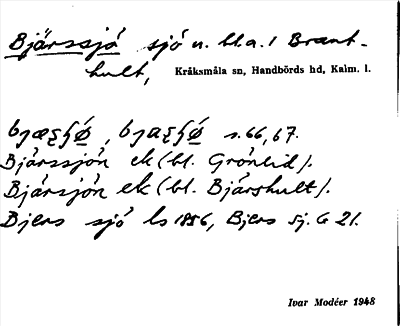 Bjärssjö sjö n. bl.a. i Brant-
hult,
Kråksmåla sn, Handbörds hd, Kalm. l.
s. 66, 67.
Bjärssjön ek (bl. Grönlid).
Bjärsjön ek (bl. Bjärshult).
Bjers sjö ls 1856, Bjers sj. G 21.
Ivar Modéer 1948